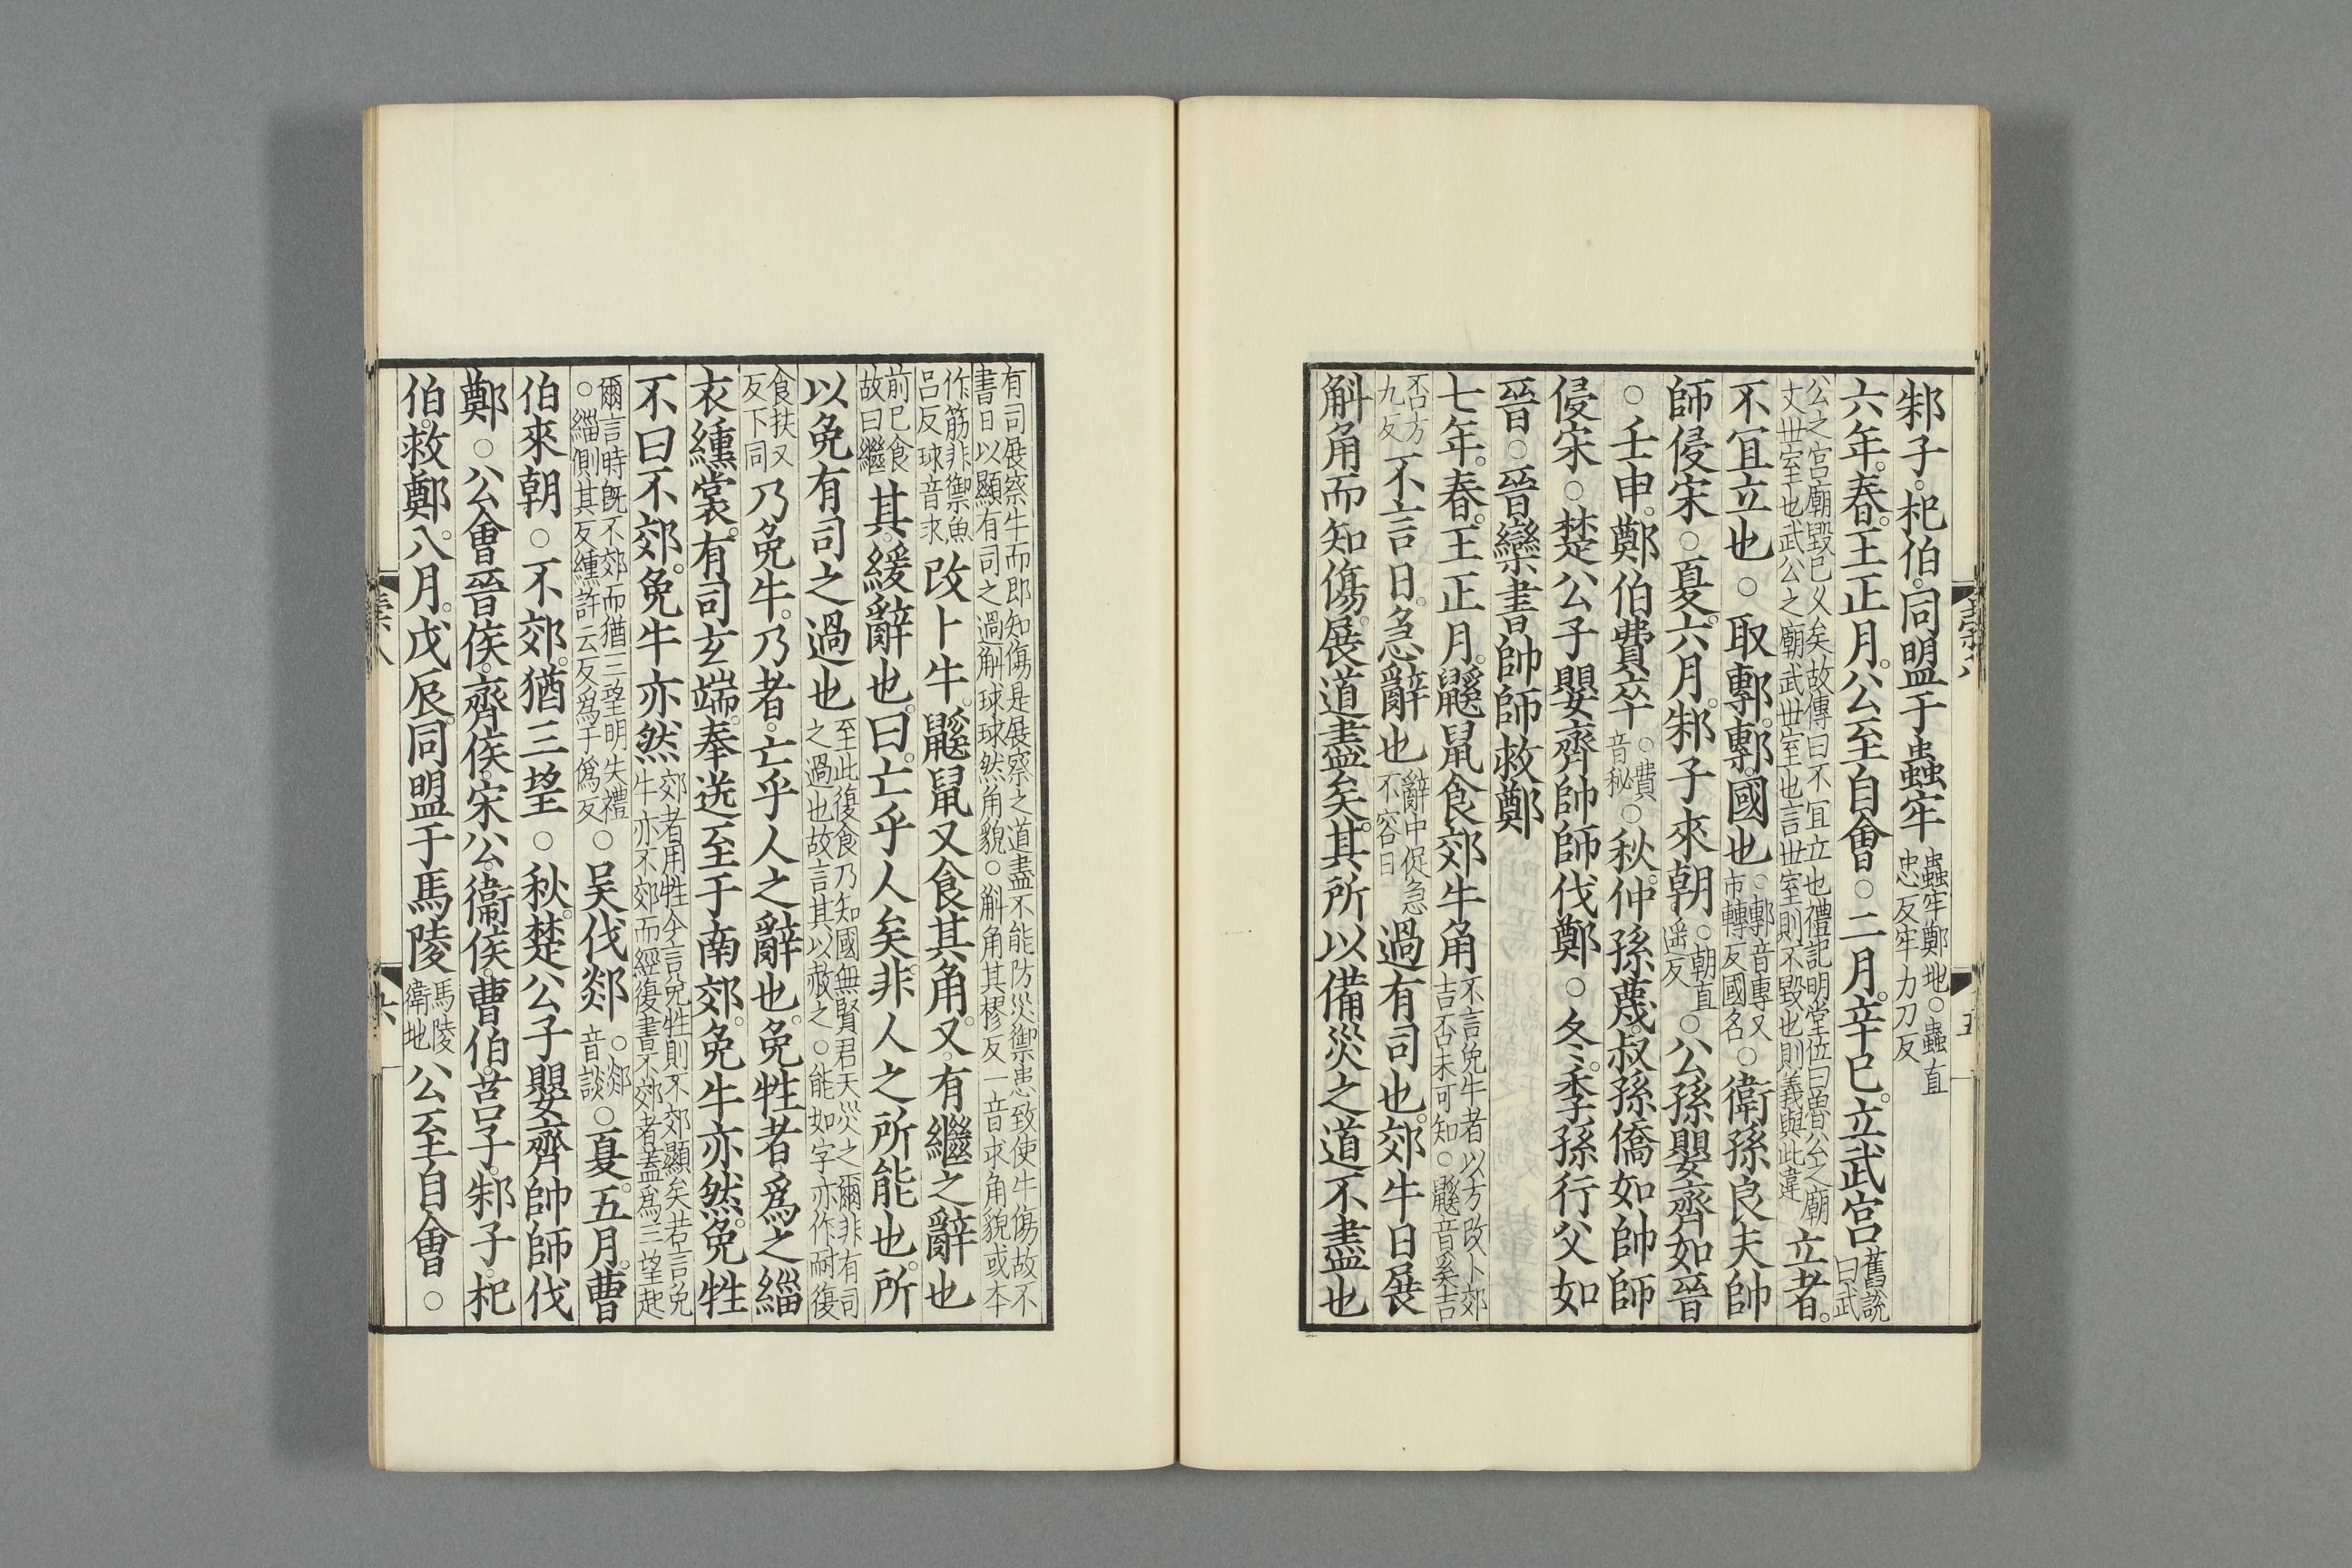 邾子。杞伯。同盟于蟲牢蟲牢鄭地○蟲直忠反牢力刀反
六年。春。王正月。公至自會○二月。辛巳。立武宮舊說曰武
公之宮廟毀已乆矣故傳曰不冝立也禮記明堂位曰魯公之廟文世室也武公之廟武世室也言世室則不毀也則義與此違立者。
不冝立也○取鄟。鄟。國也○鄟音專又市轉反國名○衛孫良夫帥
師侵宋○夏。六月。邾子來朝○朝直遥反○公孫嬰齊如晉
○壬申。鄭伯費卒○費音秘○秋。仲孫蔑。叔孫僑如帥師
侵宋○楚公子嬰齊帥師伐鄭○冬。季孫行父如
晉○晉欒書帥師救鄭
七年。春。王正月。鼷鼠食郊牛角不言免牛者以方改卜郊吉否未可知○鼷音奚吉
否方九反不言日。急辭也辭中促急不容日過有司也。郊牛日展
斛角而知傷。展道盡矣。其所以備災之道不盡也
有司展察牛而即知傷是展察之道盡不能防災禦患致使牛傷故不書日以顯有司之過斛球球然角貌○斛角其樛反一音求角貌或本
作筋非禦魚吕反球音求改卜牛。鼷鼠又食其角。又。有繼之辭也
前已食故曰繼其。緩辭也。曰。亡乎人矣。非人之所能也。所
以免有司之過也至此復食乃知國無賢君天災之爾非有司之過也故言其以赦之○能如字亦作耐復
食扶又反下同乃免牛。乃者。亡乎人之辭也。免牲者。爲之緇
衣纁裳。有司玄端。奉送至于南郊。免牛亦然。免牲
不曰不郊。免牛亦然郊者用牲今言免牲則不郊顯矣若言免牛亦不郊而經復書不郊者蓋爲三望起
爾言時旣不郊而猶三望明失禮○緇側其反纁許云反爲于僞反○吴伐郯○郯音談○夏。五月。曹
伯來朝○不郊。猶三望○秋。楚公子嬰齊帥師伐
鄭○公會晉侯。齊侯。宋公。衛侯。曹伯。莒子。邾子。杞
伯。救鄭。八月。戊辰。同盟于馬陵馬陵衛地公至自會○